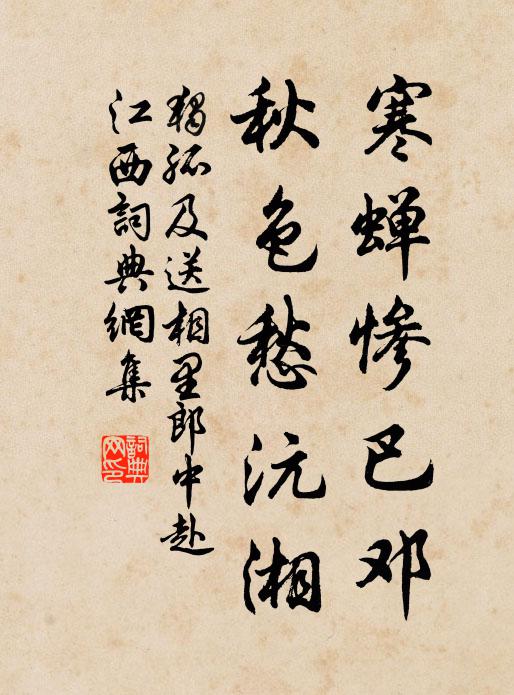 寒蝉惨巴邓
秋色愁沅湘
獨孤及送相里郎中赴
江西詞典網集
詞典
网印